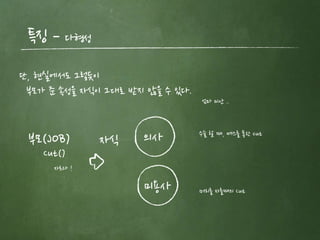 특징 - 다형성
단, 현실에서도 그렇듯이
부모가 준 속성을 자식이 그대로 받지 않을 수 있다.
부모(JOB)
cut()
자르다!
자식
의사
수술 할 때, 메스를 통한 cut
미용사
머리를 자를때의 cut